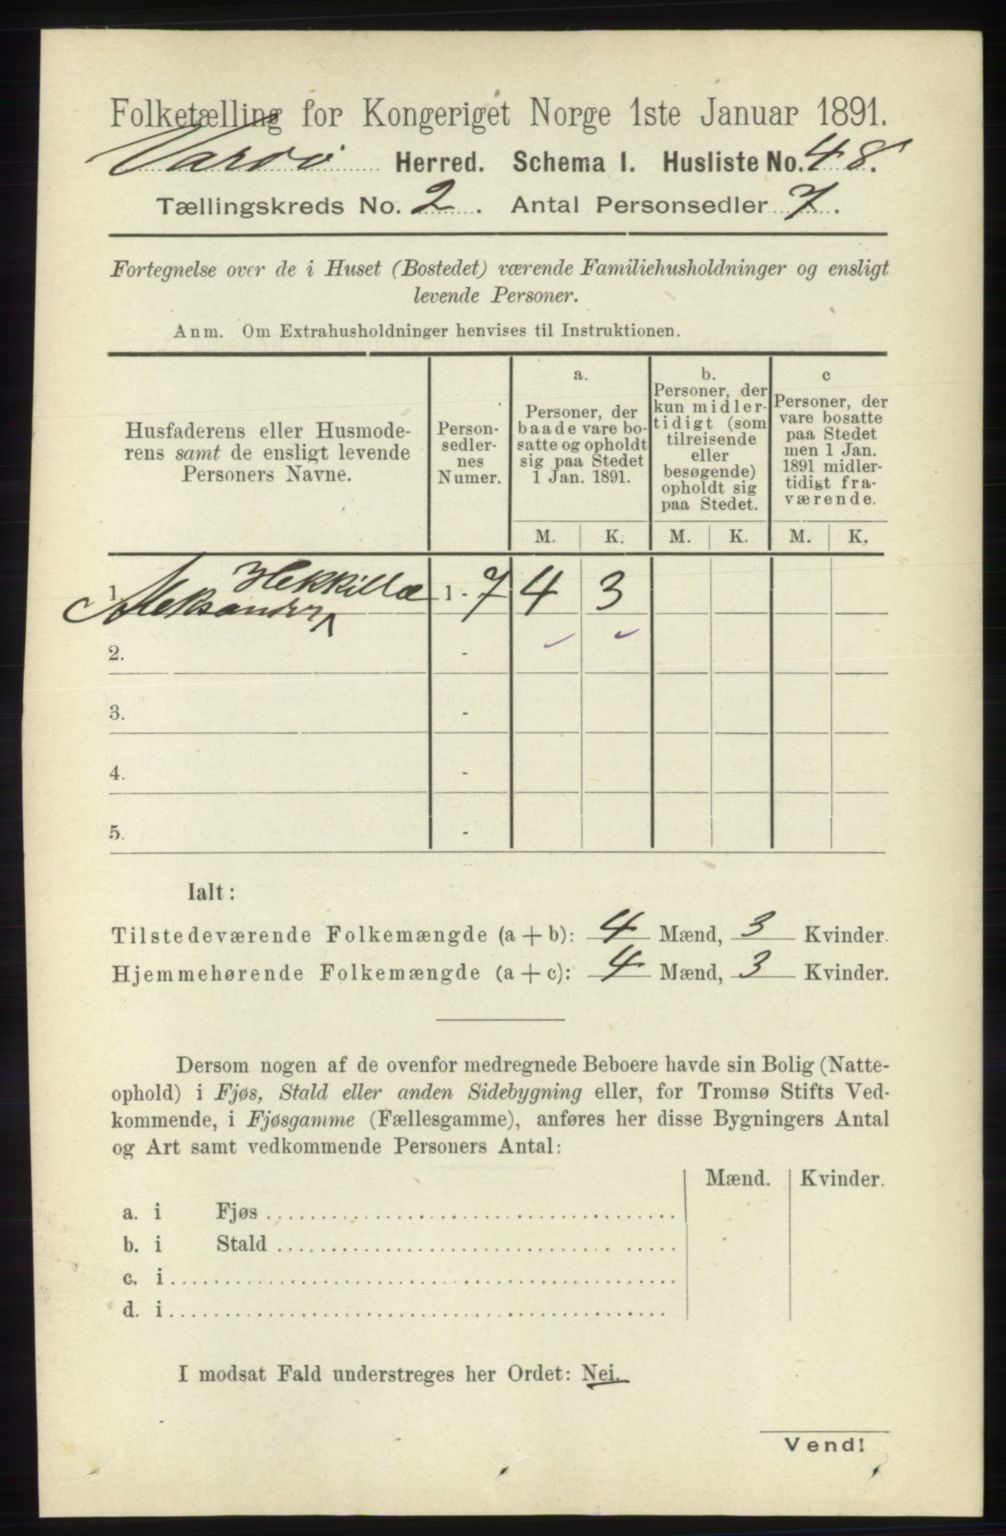 Folketælling for Kongeriget Norge 1ste Januar 1891.
Vardø Herred. Schema I. Husliste No. 48.
Tællingskreds No. 2. Antal Personsedler 7.
Fortegnelse over de i Huset (Bostedet) værende Familiehusholdninger og ensligt
levende Personer.
Anm. Om Extrahusholdninger henvises til Instruktionen.
Husfaderens eller Husmode-
rens samt de ensligt levende
Personers Navne.
Person-
sedler-
nes
Numer.
a.
Personer, der
baade vare bo-
satte og opholdt
sig paa Stedet
1 Jan. 1891.
b.
Personer, der
kun midler-
tidigt (som
tilreisende
eller
besøgende)
opholdt sig
paa Stedet.
c
Personer, der
vare bosatte
paa Stedet
men 1 Jan.
1891 midler-
tidigt fra-
værende.
M. K. M. K. M. K.
Hekkilla
1. Aleksander 1 - 7 4 3
2. -
3. -
4. -
5. -
Ialt:
Tilstedeværende Folkemængde (a + b): 4 Mænd, 3 Kvinder.
Hjemmehørende Folkemængde (a + c): 4 Mænd, 3 Kvinder.
Dersom nogen af de ovenfor medregnede Beboere havde sin Bolig (Natte-
ophold) i Fjøs, Stald eller anden Sidebygning eller, for Tromsø Stifts Ved-
kommende, i Fjøsgamme (Fællesgamme), anføres her disse Bygningers Antal
og Art samt vedkommende Personers Antal:
Mænd. Kvinder.
a. i Fjøs
b. i Stald
c. i
d. i
I modsat Fald understreges her Ordet: Nei.
Vend!